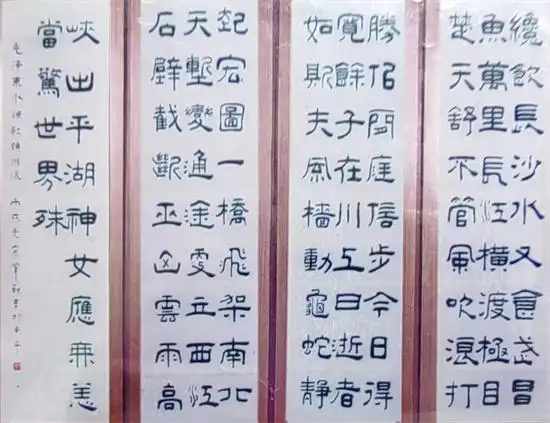 纔飲長沙水又食武昌
魚萬里長江橫渡極目
楚天舒不管風吹浪打
勝佀閒庭信步今日得
寬餘子在川上曰逝者
如斯夫風檣動龜蛇靜
起宏圖一橋飛架南北
天塹變通途更立西江
石壁截斷巫山雲雨高
峽出平湖神女應無恙
當驚世界殊
毛澤東水調歌頭游泳